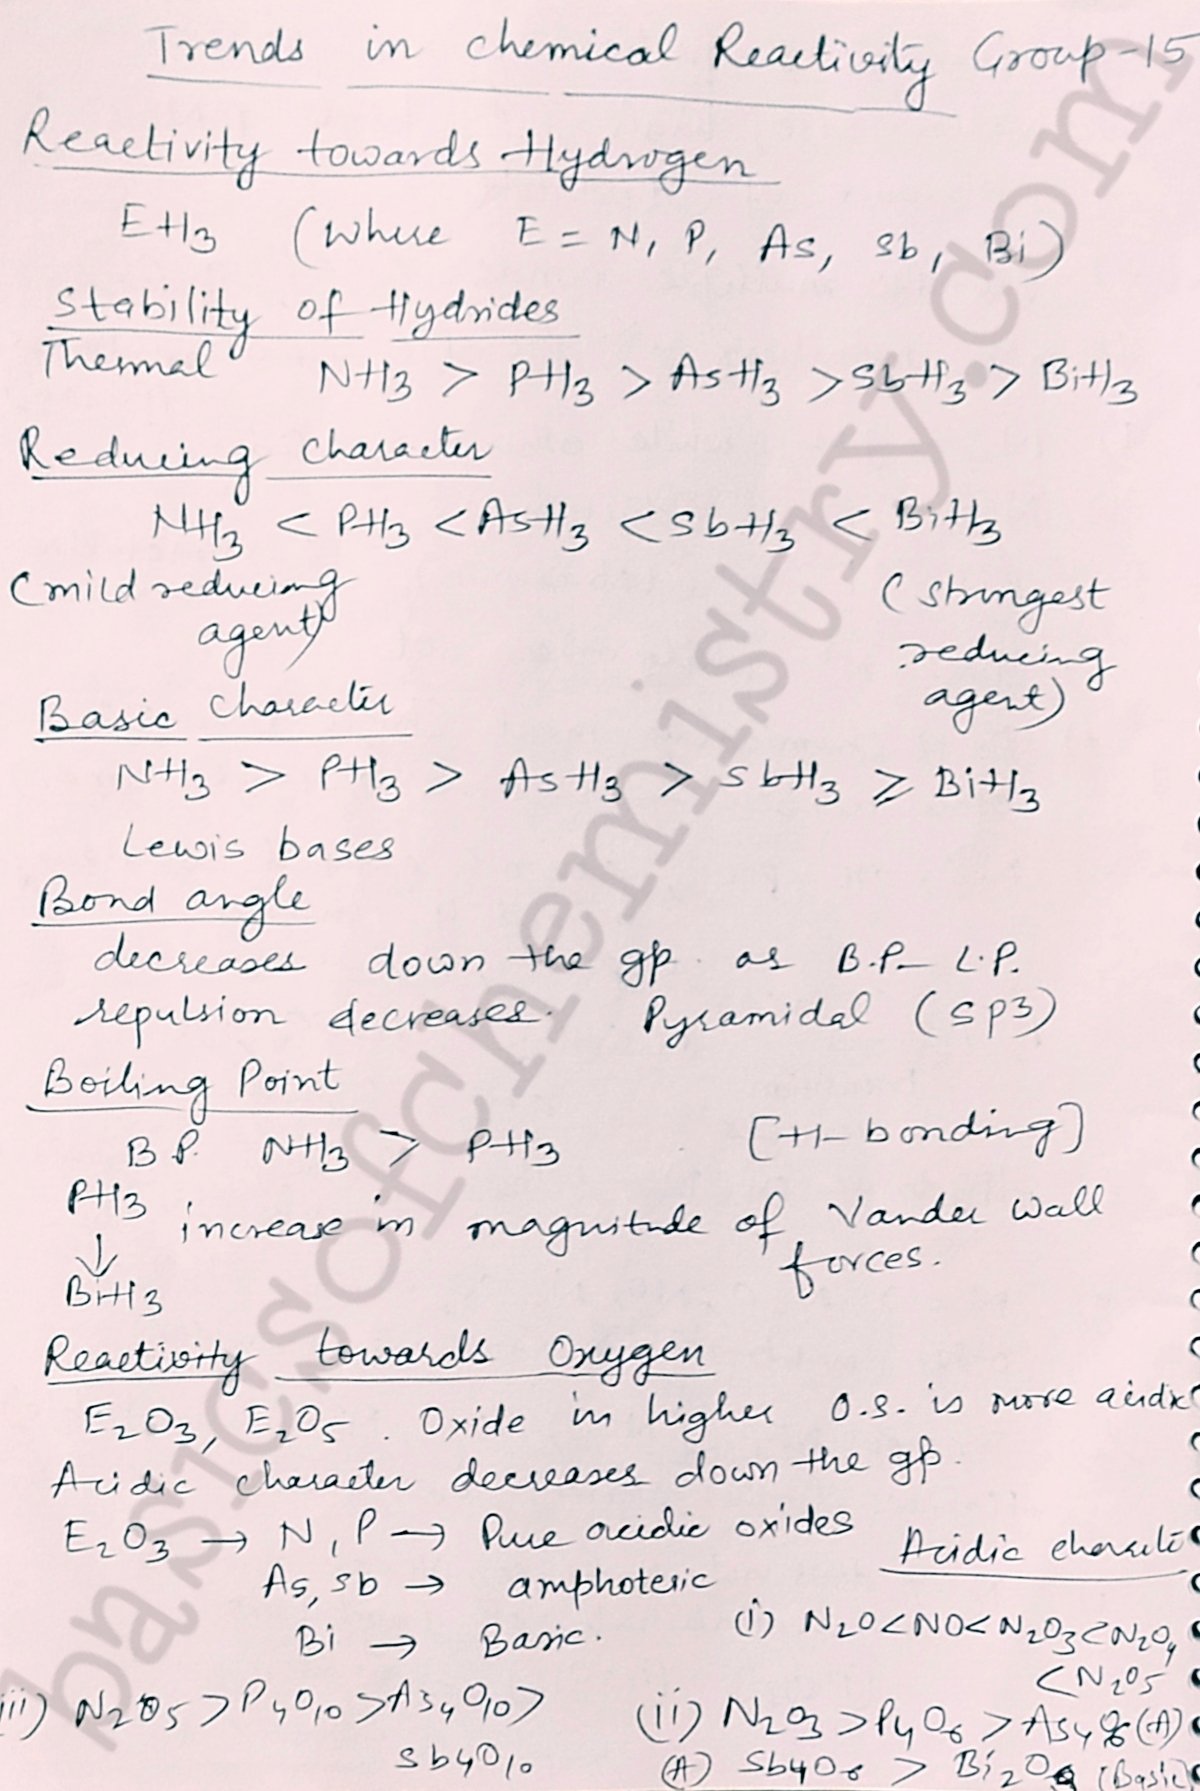 Trends in chemical Reactivity Group-15
Reactivity towards Hydrogen
EH3 (where E = N, P, As, Sb, Bi)
Stability of Hydrides
Thermal NH3 > PH3 > AsH3 > SbH3 > BiH3
Reducing character
NH3 < PH3 < AsH3 < SbH3 < BiH3
(mild reducing agent) (strongest reducing agent)
Basic character
NH3 > PH3 > AsH3 > SbH3 ≥ BiH3
Lewis bases
Bond angle
decreases down the gp. as B.P– L.P.
repulsion decreases. Pyramidal (sp3)
Boiling Point
B.P. NH3 > PH3 [H-bonding]
PH3 ↓ BiH3 increase in magnitude of Vander Wall forces.
Reactivity towards Oxygen
E2O3, E2O5. Oxide in higher O.S. is more acidic
Acidic character decreases down the gp.
E2O3 → N, P → Pure acidic oxides
As, Sb → amphoteric
Bi → Basic.
Acidic characte
(i) N2O<NO<N2O3<N2O4
<N2O5
(ii) N2O3 >P4O6 > As4O6(A)
(A) Sb4O6 > Bi2O3 (Basic)
iii) N2O5 >P4O10 >As4O10>
Sb4O10
basicsofchemistry.com